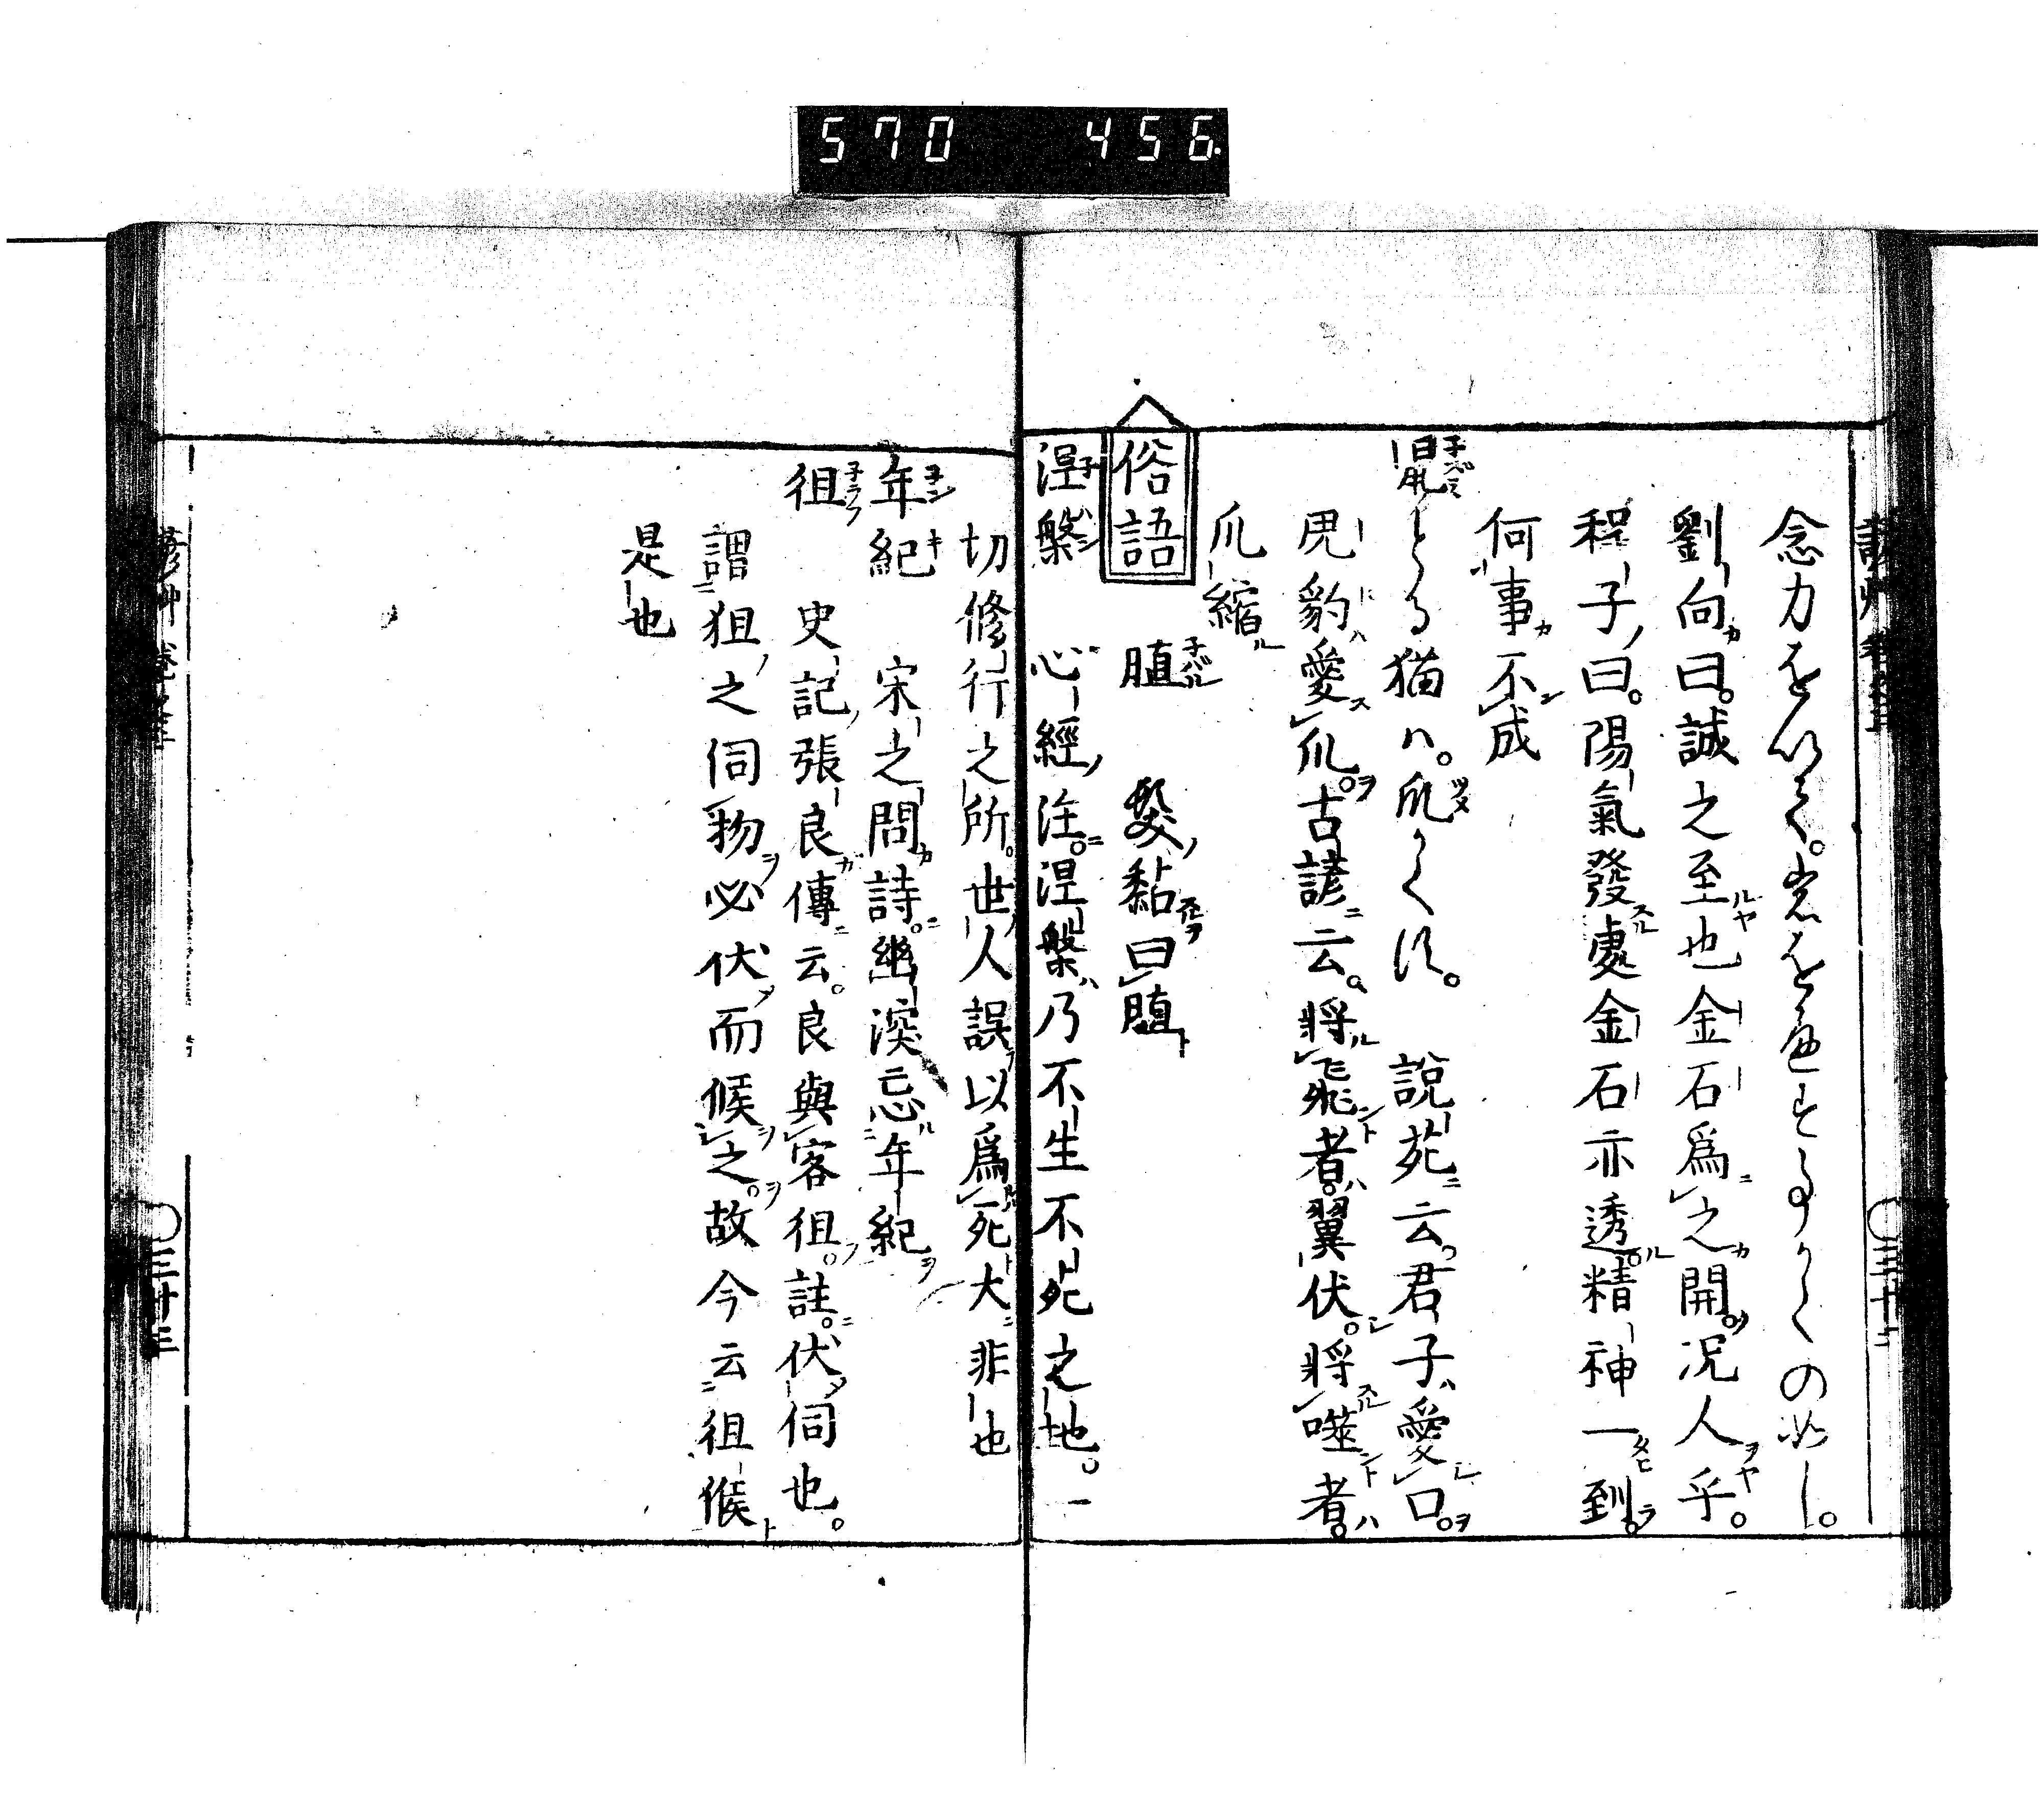 570 456
念力を以て。岩をも通すことかくの如し。
劉向曰。誠之至也金石爲之開。况人乎。
程子曰。陽氣發處金石亦透。精神一到。
何事不成
鼠とる猫ハ。爪かくす。 說苑云。君子愛口。
虎豹愛爪。古諺云。將飛者。翼伏。將噬者。
爪縮
俗語 膱 髮黏曰膱
涅槃 心經注。涅槃乃不生不死之地。一
切修行之所。世人誤以爲死大非也
年紀 宋之問詩。幽深忘年紀
徂 史記張良傳云。良與客徂。註。伏伺也。
謂狙之伺物必伏而候之。故今云徂候
是也
三十三